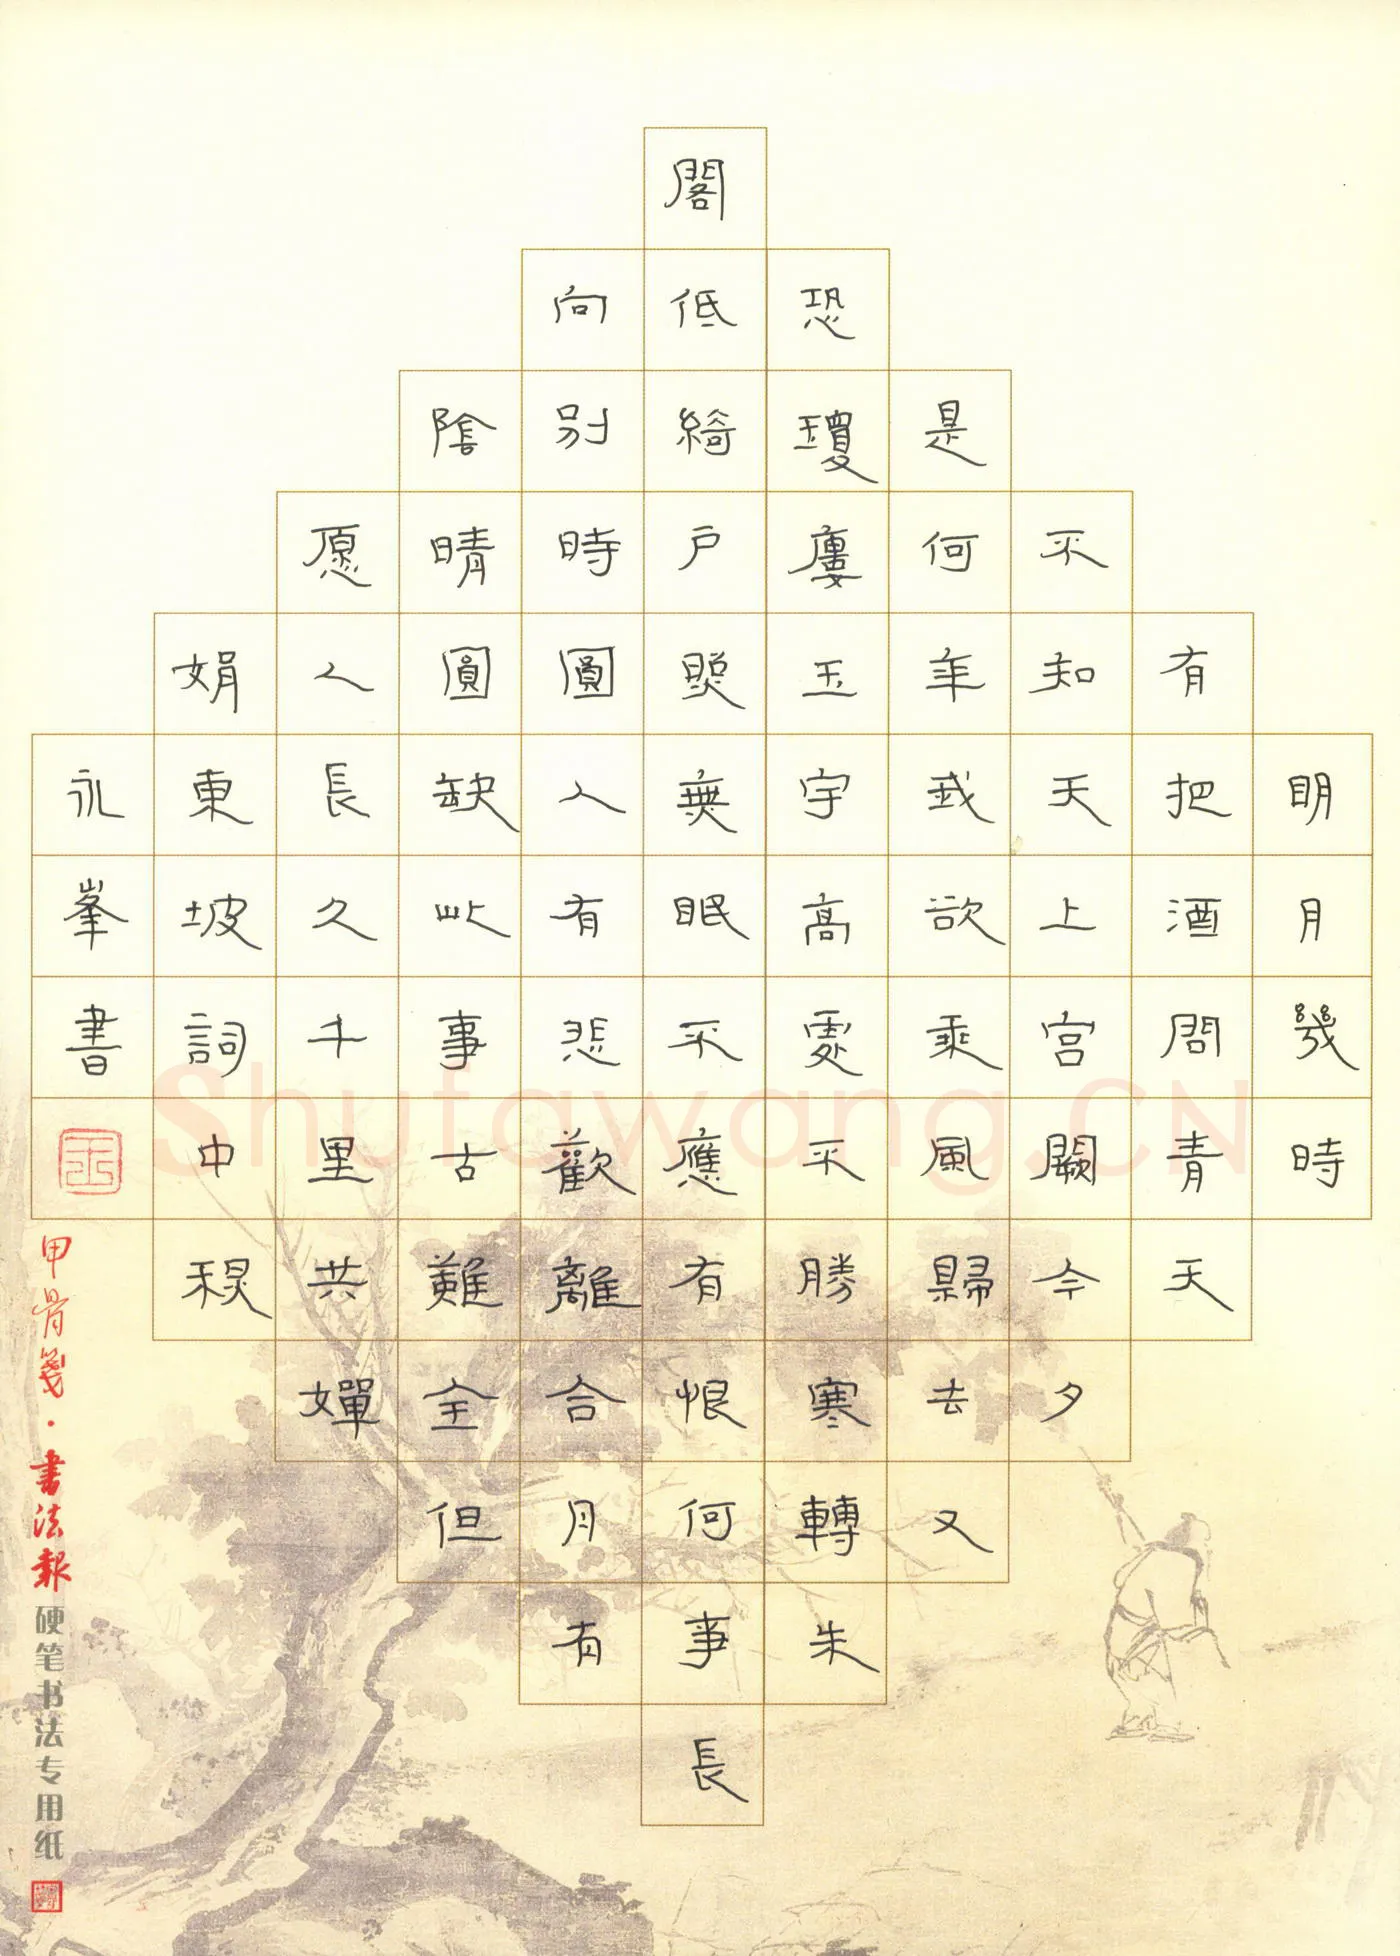 明月幾時
有把酒問青天
不知天上宫闕今夕
是何年我欲乘風歸去又
恐瓊廔玉宇高處不勝寒轉朱
閣低綺户照無眠不應有恨何事長
向別時圓人有悲歡離合月有
陰晴圓缺此事古難全但
愿人長久千里共嬋
娟東坡詞中秋
永峯書
甲骨箋·書法報硬笔书法专用纸
Shufawang.CN